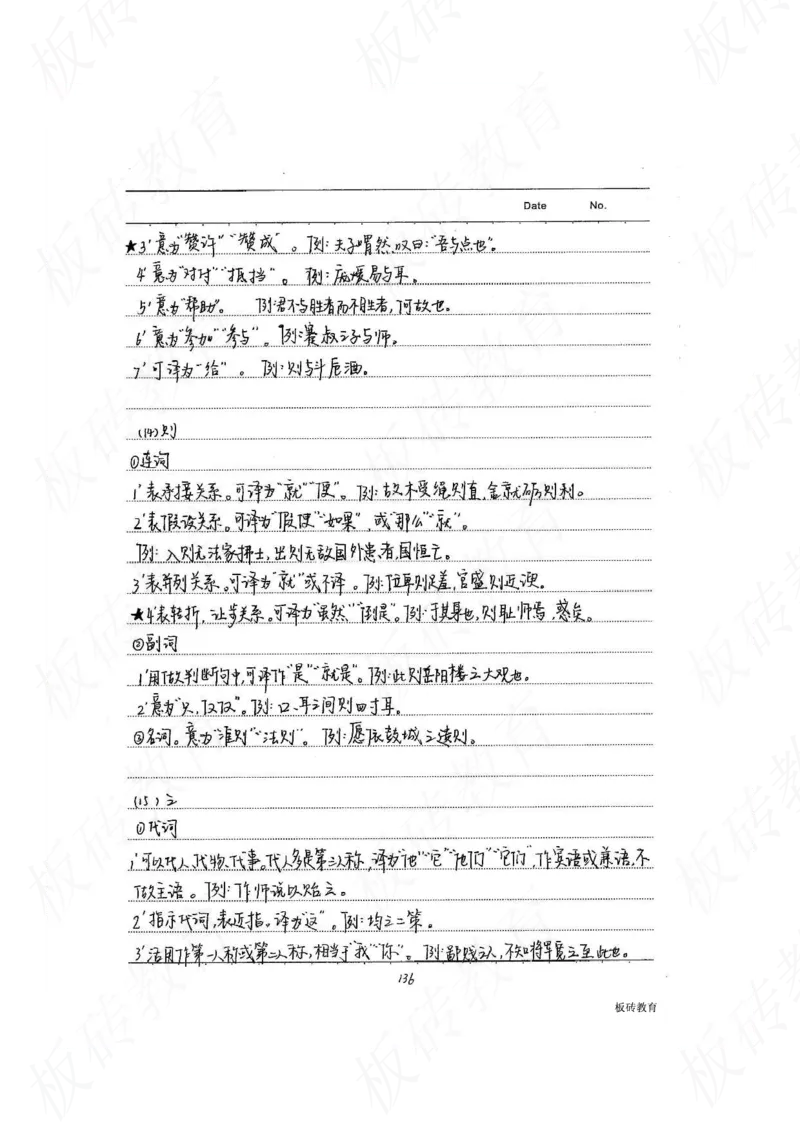 Date No.
★3'意为"赞许""赞成"。例:夫子喟然叹曰:"吾与点也"。
4'意为"对付""抵挡"。例:庞煖易与耳。
5'意为"帮助"。例:君不与胜者而不与胜者,何故也。
6'意为"参加""参与"。例:蹇叔之子与师。
7'可译为"给"。例:则与斗卮酒。
(14)则
①连词
1'表承接关系。可译为"就""便"。例:故木受绳则直,金就砺则利。
2'表假设关系。可译为"假使""如果",或"那么""就"。
例:入则无法家拂士,出则无敌国外患者,国恒亡。
3'表并列关系。可译为"就"或不译。例:位卑则足羞,官盛则近谀。
★4'表转折,让步关系。可译为"虽然""倒是"。例:于其身也,则耻师焉,惑矣。
②副词
1'用做判断句中,可译作"是""就是"。例:此则岳阳楼之大观也。
2'意为"只,仅仅"。例:口、耳之间则四寸耳。
③名词。意为"准则""法则"。例:愿依彭城之遗则。
(15)之
①代词
1'可以代人、代物、代事。代人多是第三人称,译为"他""它""他们""它们",作宾语或兼语,不
做主语。例:作师说以贻之。
2'指示代词,表近指。译为"这"。例:均之二策。
3'活用作第一人称或第二人称,相当于"我""你"。例:鄙贱之人,不知将军宽之至此也。
136
板砖教育